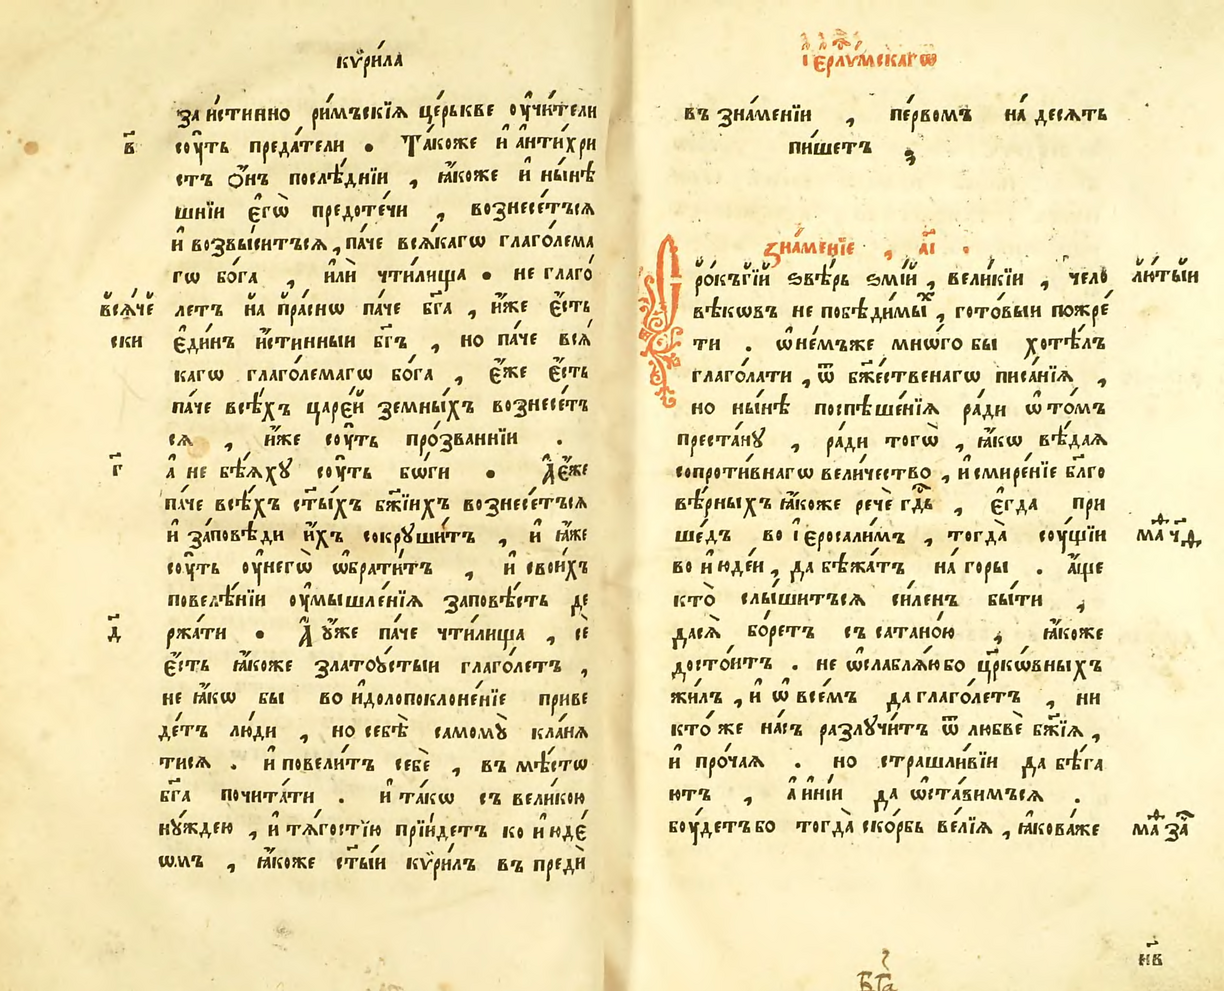 кѷри́ла
за и҆́стинно ри́мъскїѧ це́рькве ѹ҆чи́тели
в҃
сѹ҆́ть преда́тели . Та́коже и҆ а҆нти́хри
стъ ѻ҆́нъ послѣ́днїи , ꙗ҆́коже и҆ ны́нѣ
шнїи є҆гѡ̀ предоте́чи , вознесе́тъсѧ
и҆ возвы́ситъсѧ , па́че всѧ́кагѡ глаго́лема
гѡ бо́га , и҆лѝ чти́лища . не глаго́
всѧ́че
летъ на̀ пра́снѡ па́че бг҃а , и҆́же є҆́сть
ски
є҆ди́нъ и҆́стинныи бг҃ъ , но па́че всѧ́
кагѡ глаго́лемагѡ бо́га , є҆́же є҆́сть
па́че всѣ́хъ царе́й земны́хъ вознесе́тъ
сѧ , и҆́же сѹ҆́ть про́званнїи .
г҃
а҆ не бѣ́ѧхꙋ сѹ҆́ть бѡ́ги . А҆є҆́же
па́че всѣ́хъ ст҃ы́хъ бж҃їихъ вознесе́тъсѧ
и҆ за́повѣди и҆́хъ сокрꙋши́тъ , и҆ ꙗ҆́же
сѹ҆́ть ѹ҆негѡ̀ ѡ҆брати́тъ , и҆ свои́хъ
повелѣ́нїи ѹ҆мышле́нїѧ за́повѣсть де
д҃
ржа́ти . А҆ ꙋ҆́же па́че чти́лища , сѐ
є҆́сть ꙗ҆́коже златоꙋ́стыи глаго́летъ ,
не ꙗ҆́кѡ бы во и҆долопоклоне́нїе приве
де́тъ лю́ди , но себѣ̀ самомꙋ̀ кла́нѧ
тисѧ . и҆ повели́тъ себѐ , въ мѣ́стѡ
бг҃а почита́ти . и҆ та́кѡ съ вели́кою
нꙋ́ждею , и҆ тѧ́гостїю прїи́детъ ко и҆ юде́
ѡмъ , ꙗ҆́коже ст҃ы́и кѷри́лъ въ преди́
і҆єрл҃и́мскагѡ
въ зна́менїи , пе́рвомъ на́ десѧть
пи́шетъ ,
зна́менїе , а҃і .
Прокъ́гїй ѕвѣ́рь ѕмі́й , вели́кїи , чело
лю́тыи
вѣ́кѡвъ не побѣди́мы́х , гото́выи пожре́
ти . ѡ҆не́мъже мнѡ́го бы хотѣ́лъ
глаго́лати , ѿ бж҃е́ственагѡ писа́нїѧ ,
но ны́нѣ поспѣше́нїѧ ра́ди ѡ҆ то́мъ
преста́нꙋ , ра́ди тогѡ̀ , ꙗ҆́кѡ вѣ́даѧ
сопроти́внагѡ вели́чество , и҆ смире́нїе бл҃го
вѣ́рныхъ ꙗ҆́коже речѐ гд҃ь , є҆гда при
ше́дъ во і҆ єросали́мъ , тогда̀ сѹ́щїи
во и҆ юде́и , да бѣжа́тъ на́ горы . а҆́ще
кто̀ слы́шитъсѧ си́ленъ бы́ти ,
дасѧ̀ бо́ретъ съ сатано́ю , ꙗ҆́коже
досто́итъ . не ѡ҆слаблѧ́юбо цр҃ко́вныхъ
жи́лъ , и҆ ѡ҆ все́мъ да глаго́летъ , ни
кто́ же на́съ разлꙋчи́тъ ѿ любвѐ бж҃їѧ ,
и҆ про́чаѧ . но страшли́вїи да бѣ́га
ютъ , а҆ и҆ні́и да ѡ҆ста́вимъсѧ .
бѹ́детъбо тогда̀ ско́рбь ве́лїѧ , ꙗ҆кова́же
н҃в